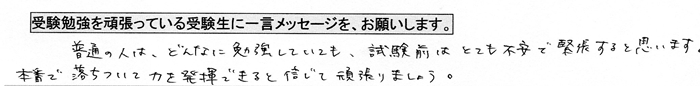 受験勉強を頑張っている受験生に一言メッセージを、お願いします。
普通の人は、どんなに勉強していても、試験前はとても不安で緊張すると思います。
本番で落ちついて力を発揮できると信じて頑張りましょう。